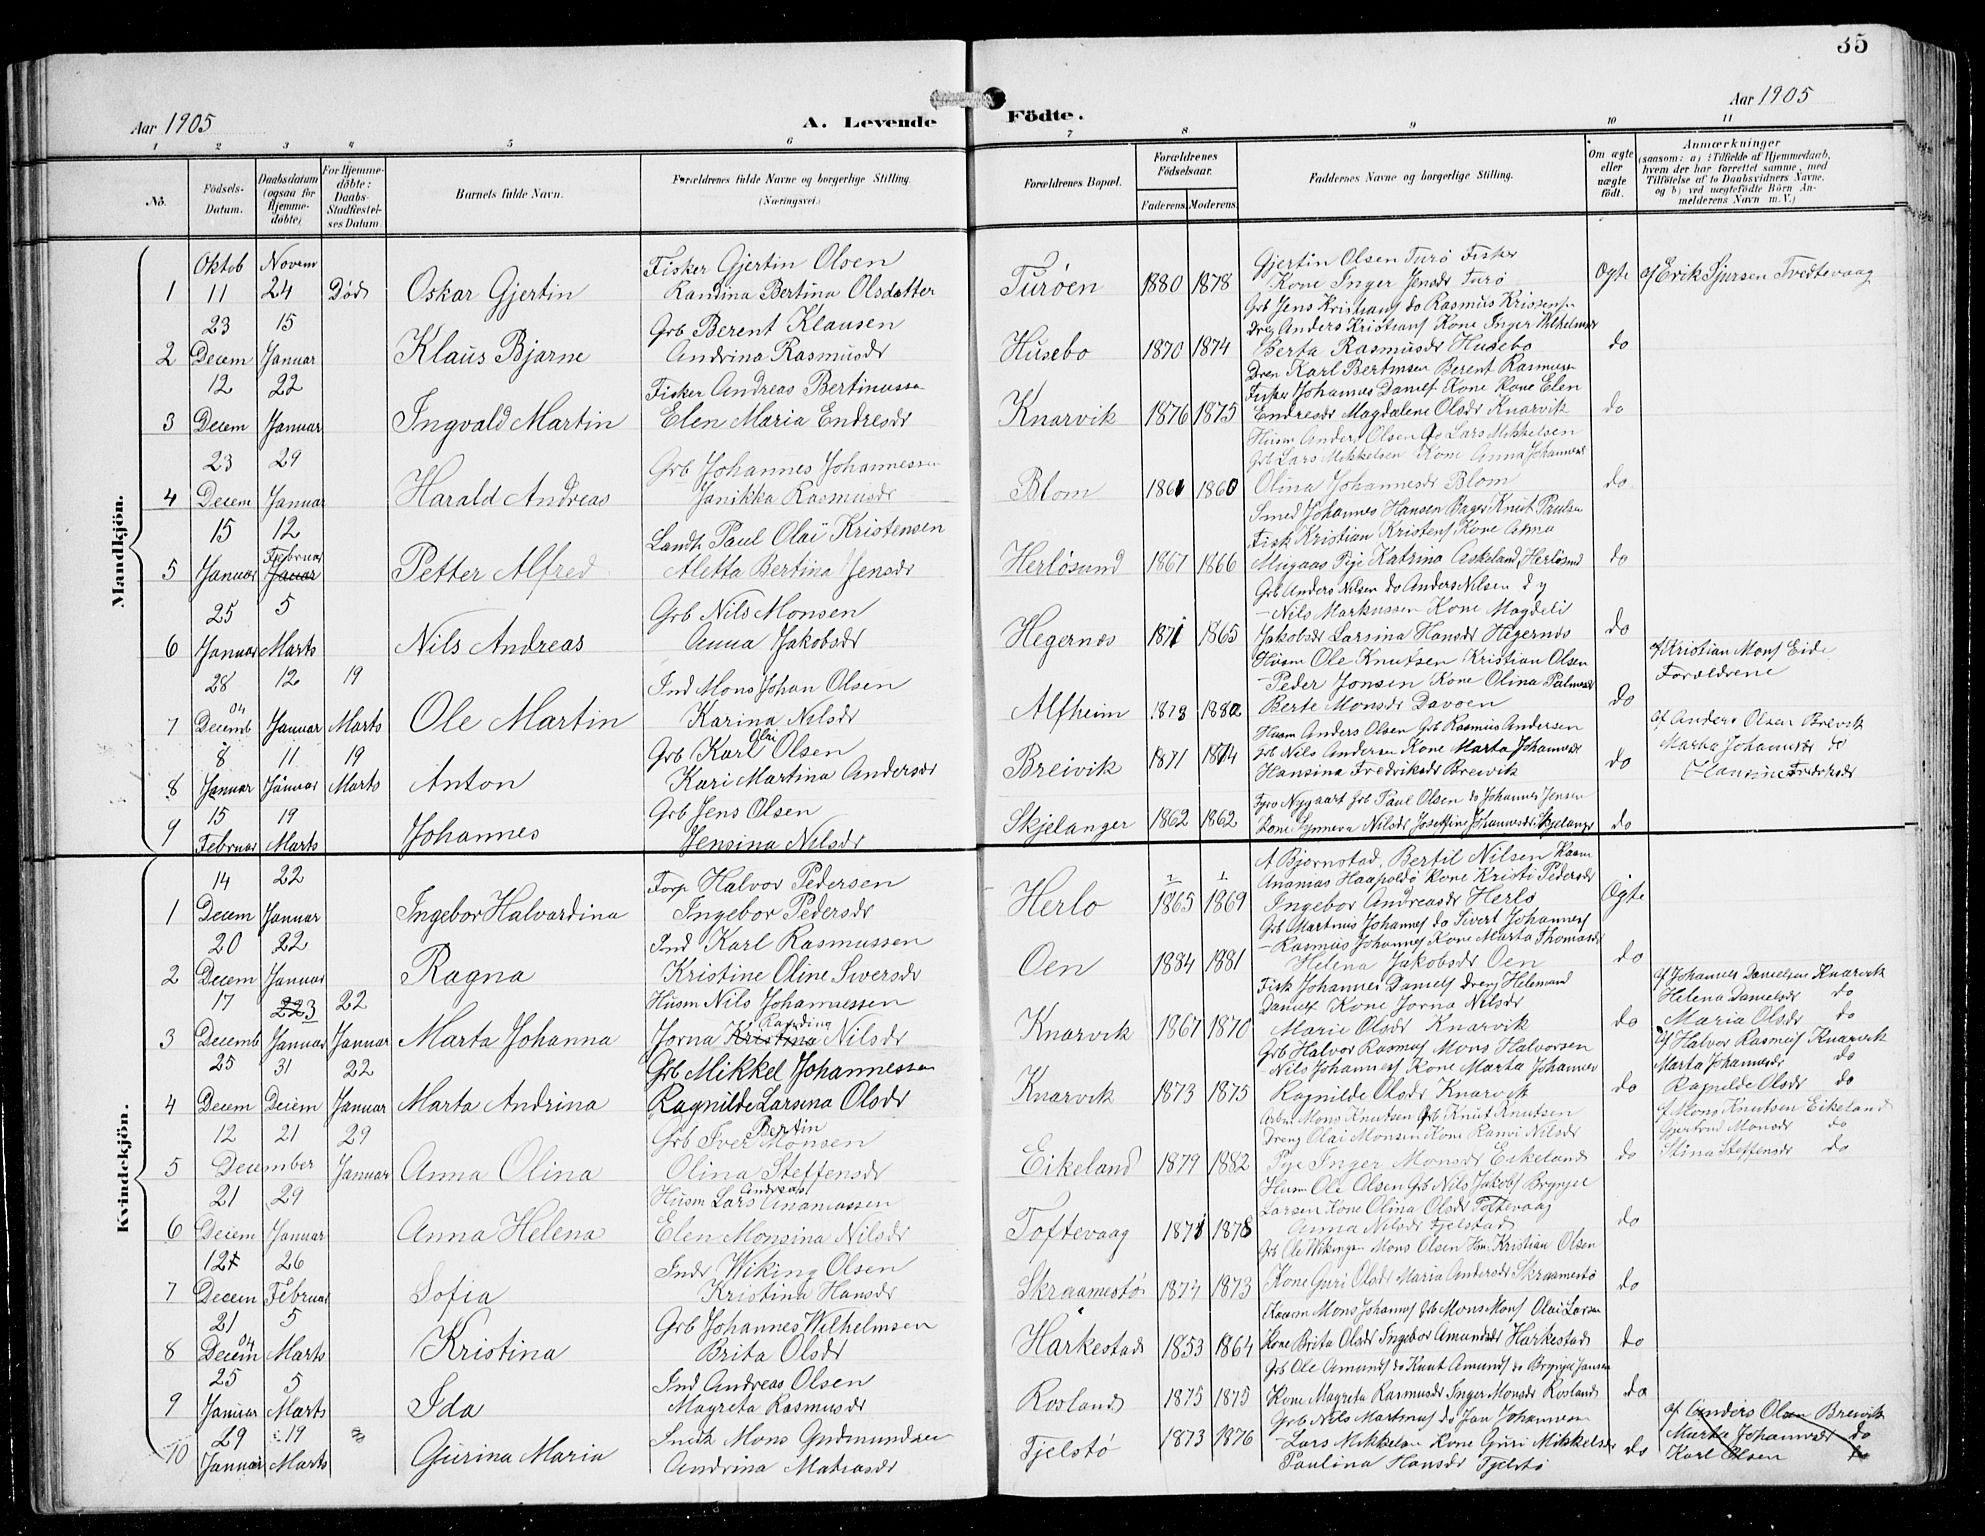 35
Aar 1905
A. Levende Födte.
Aar 1905
1 2 3 4 5 6 7 8 9 10 11
No.
Födsels-Datum.
Daabsdatum (ogsaa for Hjemme-döbte)
For Hjemme-döbte: Daabs-Stadfestel-ses Datum.
Barnets fulde Navn.
Forældrenes fulde Navne og borgerlige Stilling. (Næringsvei.)
Forældrenes Bopæl.
Forældrenes Födselsaar.
Faderens. Moderens.
Faddernes Navne og borgerlige Stilling.
Om ægte eller uægte födt.
Anmærkninger
(saasom: a) i Tilfælde af Hjemmedaab,
hvem der har forrettet samme, med
Tilföielse af to Daabsvidners Navne,
og b) ved uægtefödte Börn An-
melderens Navn m. V.)
Mandkjön.
Oktob Novem Fisker Gjertin Olsen Gjertin Olsen Turö Fisker
1 11 24 Död Oskar Gjertin Randina Bertina Olsdatter Turöen 1880 1878 Kone Inger Jensdr Turö Ogte af Erik Sjursen Tvedtevaag
23 15 Grb Berent Klausen Grb Jens Kristians do Rasmus
Dreg Anders Kristians Kone Inger
2 Decem Januar Klaus Bjarne Andrina Rasmusdr Husebo 1870 1874 Berta Rasmusdr Husebo do
12 22 Fisker Andreas Bertinussen Dren Karl Bertinsen Berent Rasmus
Fisker Johannes Danielf Kone Elen
3 Decem Januar Ingvald Martin Elen Maria Endresdr Knarvik 1876 1875 Endresdr Magdalene Olsdr Knarvik do
Husm Anders Olsen do Lars Mikkelsen
23 29 Grb Johannes Johannessen Grb Lars Mikkelsen Kone Anna Johannes
4 Decem Januar Harald Andreas Janikka Rasmusdr Blom 1861 1860 Olina Johannesdr Blom do
15 12 Landh Paul Olai Kristensen Smed Johannes Hansen Bager Knut Paulsen
Februar Fisk Kristian Kristensf Kone Anna
5 Januar Januar Petter Alfred Aletta Bertina Jensdr Herlösund 1867 1866 Pije Katrina Askeland Herlösund do
25 5 Grb Nils Monsen Grb Anders Nilsen do Anders Nilsen d y
Nils Markussen Kone Magdeli
6 Januar Marts Nils Andreas Anna Jakobsdr Hegernæs 1871 1865 Jakobsdr Larsina Hansdr Hegernæs do
28 12 19 Ind Mons Johan Olsen Husm Ole Knutsen Kristian Olsen af Kristian Monsf Eide
Peder Jonsen Kone Olina Forældrene
04
7 Decemb Januar Marts Ole Martin Karina Nilsdr Alfheim 1878 1882 Berte Monsdr Davöen do
8 11 19 Grb Karl Olai Olsen Husm Anders Olsen Grb Rasmus Andersen af Anders Olsen Brevik
Grb Nils Andersen Kone Marta Johannesdr Marta Johannesdr do
8 Januar Januar Marts Anton Kari Martina Andersdr Breivik 1871 1874 Hansina Fredriksdr Breivik do Hansine Fredriksdr
15 19 Grb Jens Olsen Nygaart Grb Paul Olsen do Johannes Jensen
9 Februar Marts Johannes Jensina Nilsdr Skjelanger 1862 1862 Kone Synneva Nilsdr Josefine Johannesdr Skjelanger do
Kvindekjön.
14 22 Forp Halvor Pedersen A Bjernstad, Bertil Nilsen
Ananias Haapoldö Kone Kristi Pedersdr
1 Decem Januar Ingebor Halvardina Ingebor Pedersdr Herlo 1865 1869 Ingebor Andreasdr Herlo Ögte
20 22 Ind Karl Rasmussen Grb Martinus Johannesf do Sivert Johannesf
Rasmus Johannesf Kone Marta Thomasdr
2 Decem Januar Ragna Kristine Oline Siversdr Oen 1884 1881 Helena Jakobsdr Oen do
17 223 22 Husm Nils Johannessen Fisk Johannes Danielsf Dreng Helemand af Johannes Danielsen Knarvik
Danielsf Kone Jorna Nilsdr Helena Danielsdr do
3 Decemb Januar Januar Marta Johanna Jorna Kristina Nilsdr Knarvik 1867 1870 Marie Olsdr Knarvik do Maria Olsdr do
25 31 22 Grb Mikkel Johannessen Grb Halvor Rasmusf Mons Halvorsen af Halvor Rasmusf Knarvik
Nils Johannesf Kone Marta Johannes Marta Johannesdr do
4 Decem Decem Januar Marta Andrina Ragnilde Larsina Olsdr Knarvik 1873 1875 Ragnilde Olsdr Knarvik do Ragnilde Olsdr do
12 21 29 Grb Iver Bertin Monsen Mons Knutsen Grb Knut Knutsen af Mons Knutsen Eikeland
Dreng Olai Monsen Kone Ranvi Nilsdr Gjertrud Monsdr do
5 December Januar Anna Olina Olina Steffensdr Eikeland 1879 1882 Pije Inger Monsdr Eikeland do Stina Steffensdr do
21 29 Husm Lars Andreas Ananiassen Husm Ole Olsen Grb Nils Jakobsf Brynjel
Larsen Kone Olina Olsdr Toftevaag
6 Decem Januar Anna Helena Elen Monsina Nilsdr Toftevaag 1871 1878 Anna Nilsdr Fjelstad do
12 26 Indr Wiking Olsen Grb Ole Wikingsen Mons Olsen Hm Kristian Olsen
7 Decem Februar Sofia Kristina Hansdr Skraamestö 1877 1873 Kone Guri Olsdr Maria Andersdr Skraamestö do
21 5 Grb Johannes Wilhelmsen Mons Johannesf Grb Mons Monsf Olai Larsen
8 Decem 04 Marts Kristina Brita Olsdr Harkestad 1853 1864 Kone Brita Olsdr Ingebor Amundsdr Harkestad do
25 5 Ind Andreas Olsen Grb Ole Amundsf do Knut Amundsf do Brynjel Jansen
9 Januar Marts Ida Magreta Rasmusdr Rosland 1875 1875 Kone Magreta Rasmusdr Inger Monsdr Rosland do
29 19 Snedk Mons Gudmundsen Grb Nils Martinusf do Jan Johannesen af Anders Olsen Breivik
Lars Mikkelsen Kone Guri Mikkelsdr Marta Johannesdr do
10 Januar Marts Gurina Maria Andrina Matiasdr Fjelstö 1873 1876 Paulina Hansdr Fjelstö do Karl Olsen do